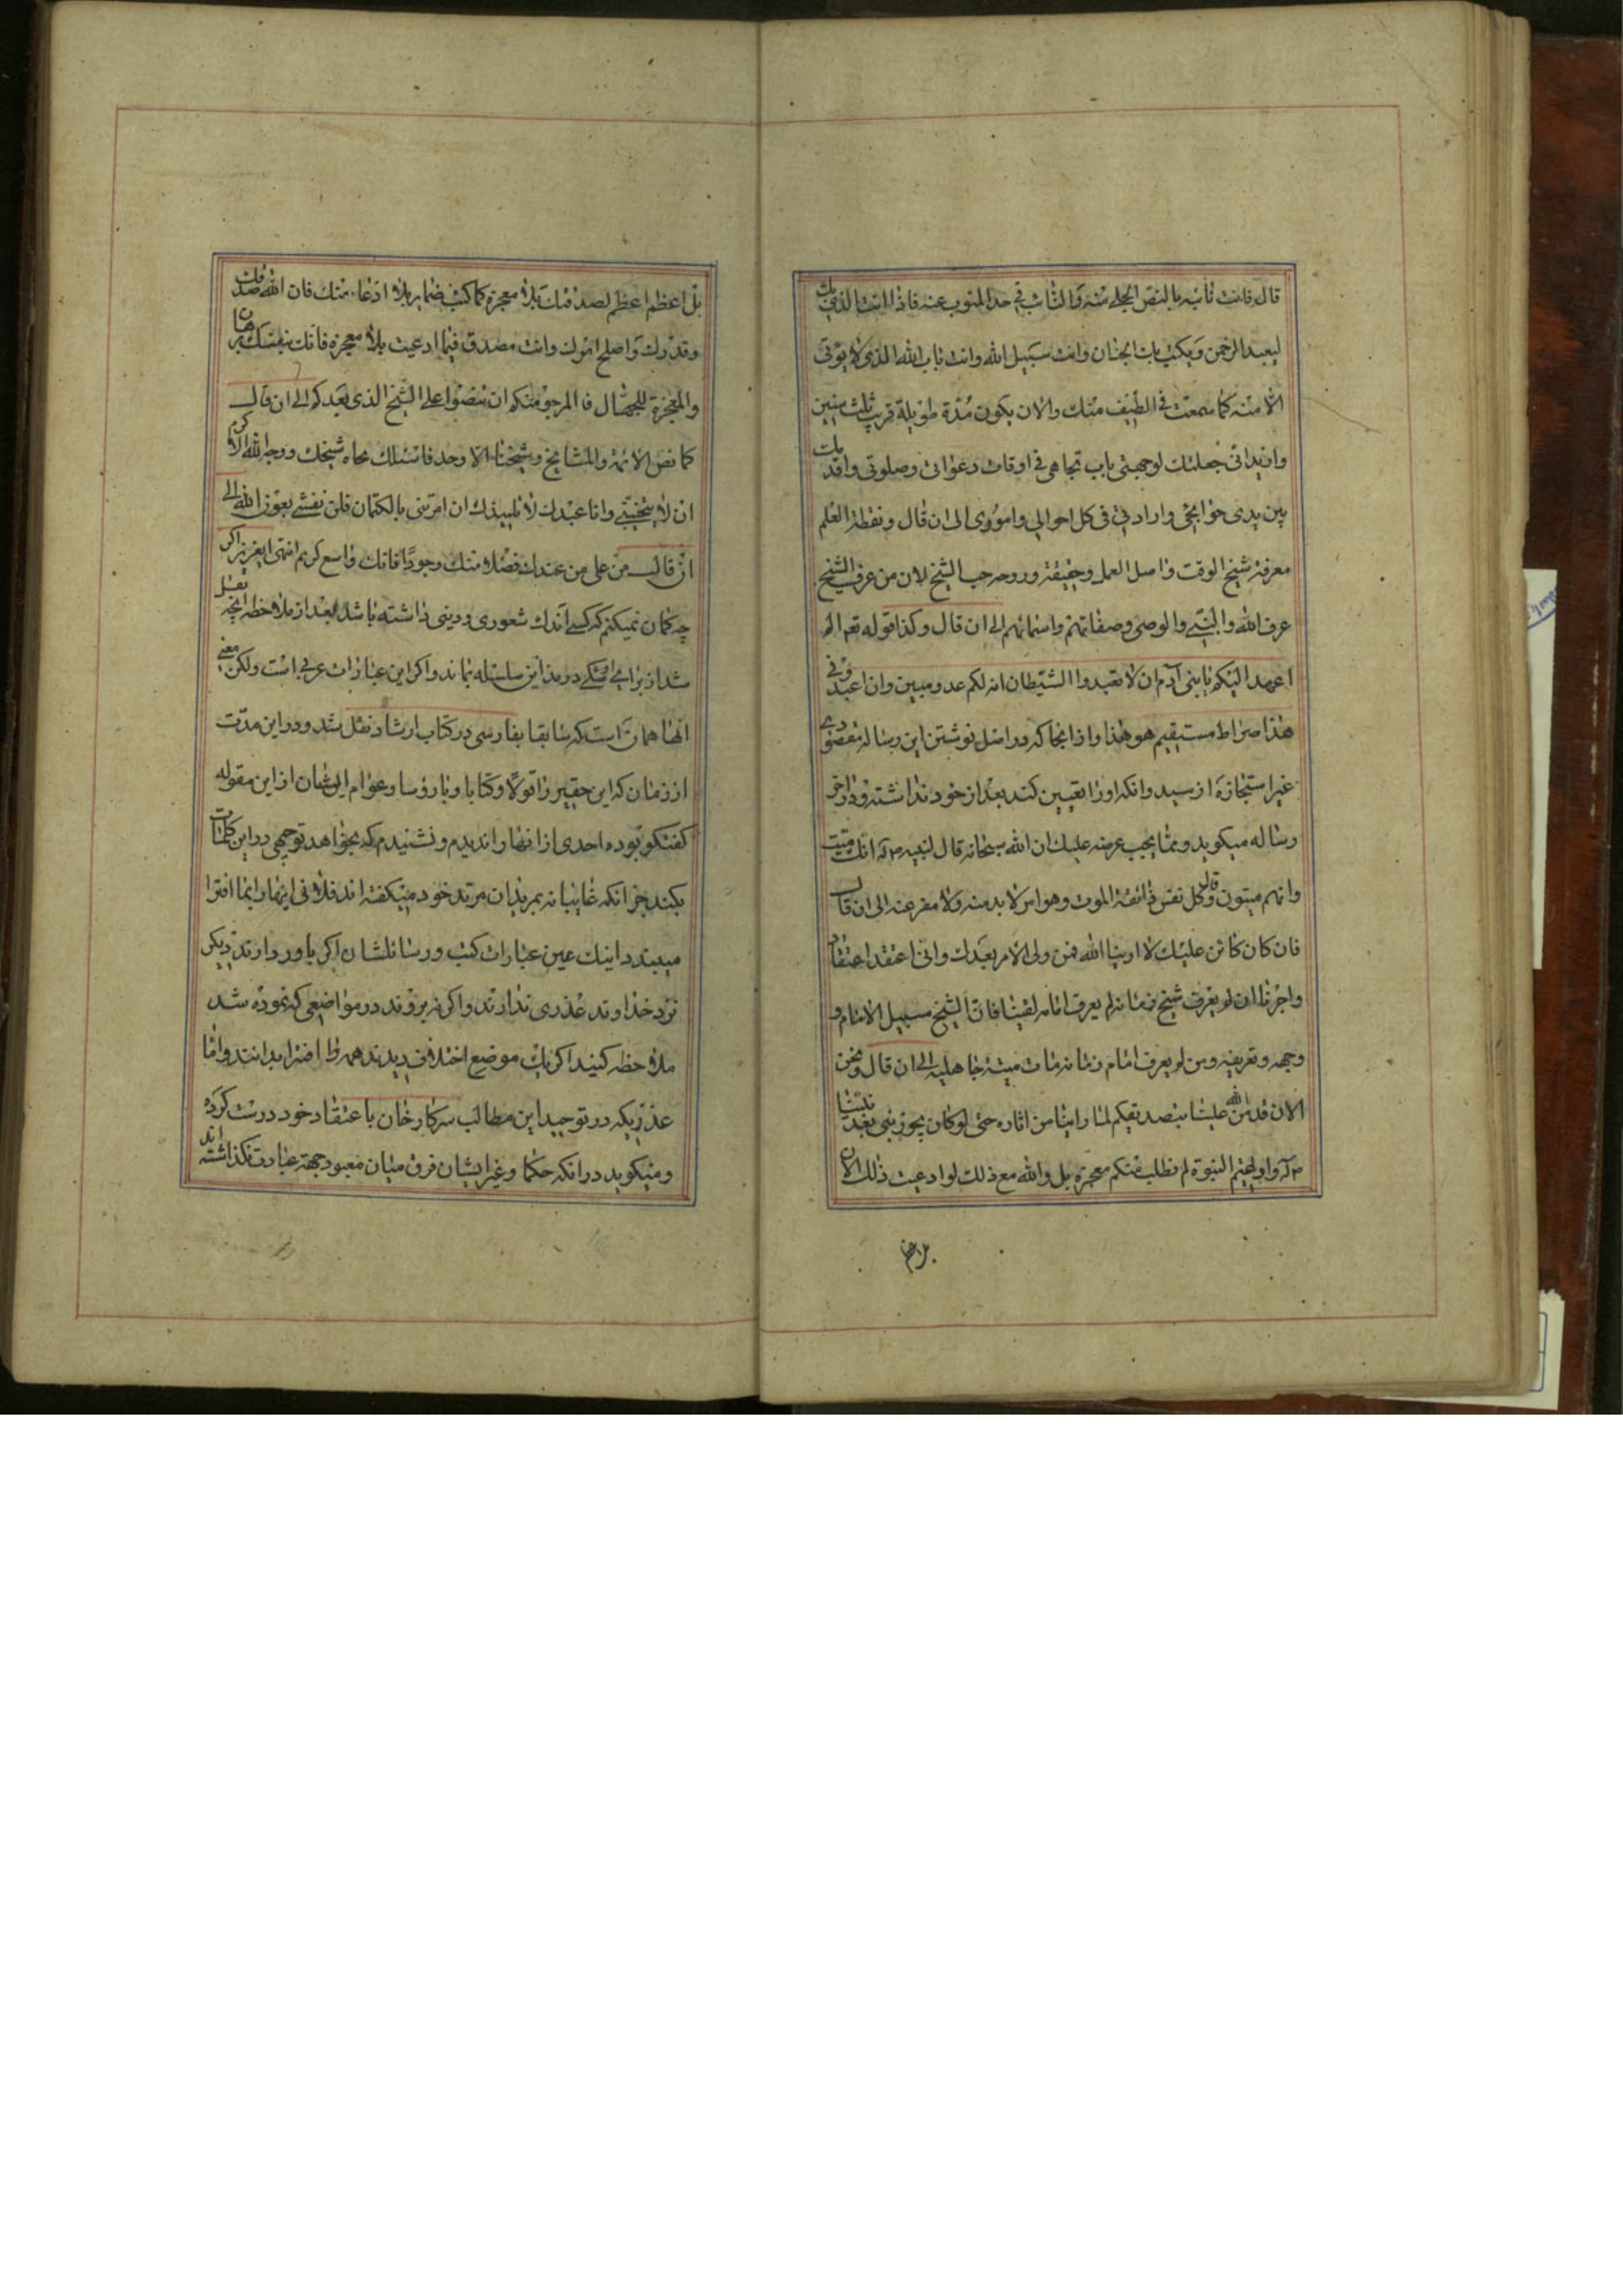 قال فانت نائبه بالنص الجلی منه والنائب فی حد المنوب عنه فاذا انت الذی بک
لیعبد الرحمن و یکتسب الجنان وانت سبیل الله وانت باب الله الذی لا یؤتی
الا منه کما سمعت فی الطیف منک والان یکون مدة طویلة قریب ثلث سنین
وازید انی جعلتک لوجهتی باب تجاهی فی اوقات دعواتی وصلوتی واقدمک
بین یدی حوائجی وارادتی فی کل احوالی واموری الی ان قال ونقطة العلم
معرفة شیخ الوقت واصل العمل وحقیقته وروحه حب الشیخ لان من عرف الشیخ
عرف الله والنبی والوصی وصفاتهم واسمائهم الی ان قال وکذا قوله تعم الم
اعهد الیکم یا بنی آدم ان لا تعبدوا الشیطان انه لکم عدو مبین وان اعبدونی
هذا صراط مستقیم هو هذا واز انجا که در اصل نوشتن این رساله مقصودی
غیر استجازه از سید وانکه اورا تعیین کند بعد از خود نداشته ودر اخر
رساله میکوید ومما یجب عرضه علیک ان الله سبحانه قال لنبیه ص‌آله انک میت
وانهم میتون وقال کل نفس ذائقة الموت وهو امر لا بد منه ولا مفر عنه الی ان قال
فان کان کائن علیک لا ارینا الله فمن ولی الامر بعدک وانی اعتقد اعتقادا
واجرنا ان لم یعرف شیخ زمانه لم یعرف امامه لقینا فان الشیخ سبیل الامام و
وجهه وتعریفه ومن لم یعرف امام زمانه مات میتة جاهلیه الی ان قال ونحن
الان قد من الله علینا بتصدیقکم لما راینا من اثاره حتی لو کان یجوز نبی بعد نبینا
ص‌آله ولم یختم النبوة لم نطلب منکم معجزة بل والله مع ذلک لو ادعیت ذلک الان
بل اعظم
بل اعظم اعظم لصدقتک بلا معجزة کما کتب ضمایر بلا ادعاء منک فان الله صدقک
وقدرک واصلح امرک وانت مصدق فیما ادعیت بلا معجزة فانک بنفسک برهان
والمعجزة للجهال فالمرجو منکم ان تنصوا علی الشیخ الذی بعدکم الی ان قال
کما نص الائمة والمشایخ وشیخنا الاوحد فاسئلک بجاه شیخک ووجه الله الاکرم
ان لا تخیبنی وانا عبدک لا تلمیذک ان امرتنی بالکتمان فلن نفشی بعون الله الی
ان قال من علی من عندک فضلا منک وجودا فانک واسع کریم انتهی ایعزیز اکر
چه کمان نمیکنم که کسی اندک شعوری ودینی داشته باشد بعد از ملاحظه انچه نقل
شد از برای او شکی در مذاین سلسله بماند واکر این عبارات عربی است ولکن معنی
انها همان است که سابقا بفارسی در کتاب ارشاد نقل شد ودر این مدت
از زمان که این حقیر را قولا وکتابا وبا رؤسا وعوام ایشان از این مقوله
کفتکو بوده احدی از انها را ندیدم ونشنیدم که بخواهد توجیهی در این کلمات
بکند جز انکه غایبانه بمریدان مرتد خود میکفته اند فلانی اینها را بما افترا
میبندد اینک عین عبارات کتب ورسائلشان اکر باور دارند دیکر
نزد خداوند عذری ندارند واکر نه بروند در مواضعی که نموده شد
ملاحظه کنید اکر یک موضع اختلافی دیدند همه را افترا بدانند واما
عذریکه در توحید این مطالب سرکار خان با عتقاد خود درست کرده
ومیکوید در انکه حکما وغیر ایشان فرق میان معبود جهة عبادت نکذاشته اند